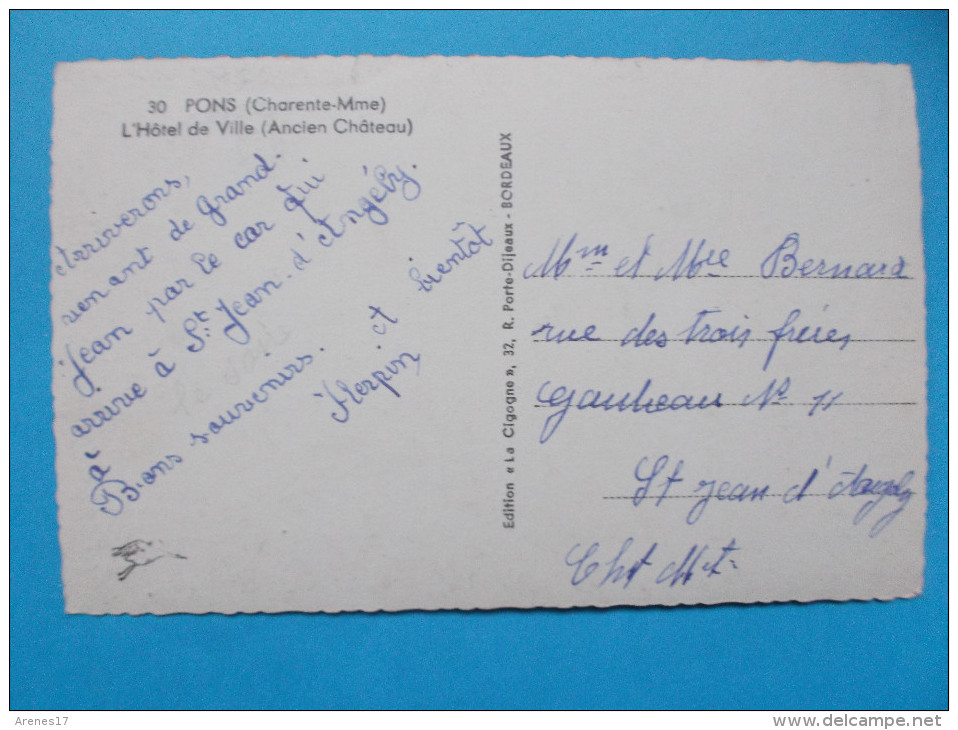 30 PONS (Charente-Mme)
L'Hôtel de Ville (Ancien Château)
Arriverons,
venant de Grand.
Jean par le car qui
arrive à St Jean-d'Angély.
à
Bons souvenirs. et bientôt
Herpin,
Edition « La Cigogne », 32, R. Porte-Dijeaux - BORDEAUX
Mm et Mme Bernard
rue des trois frères
Gautreau No 11
St Jean d'Angély
Cht Mt-
Arenes17
www.delcampe.net